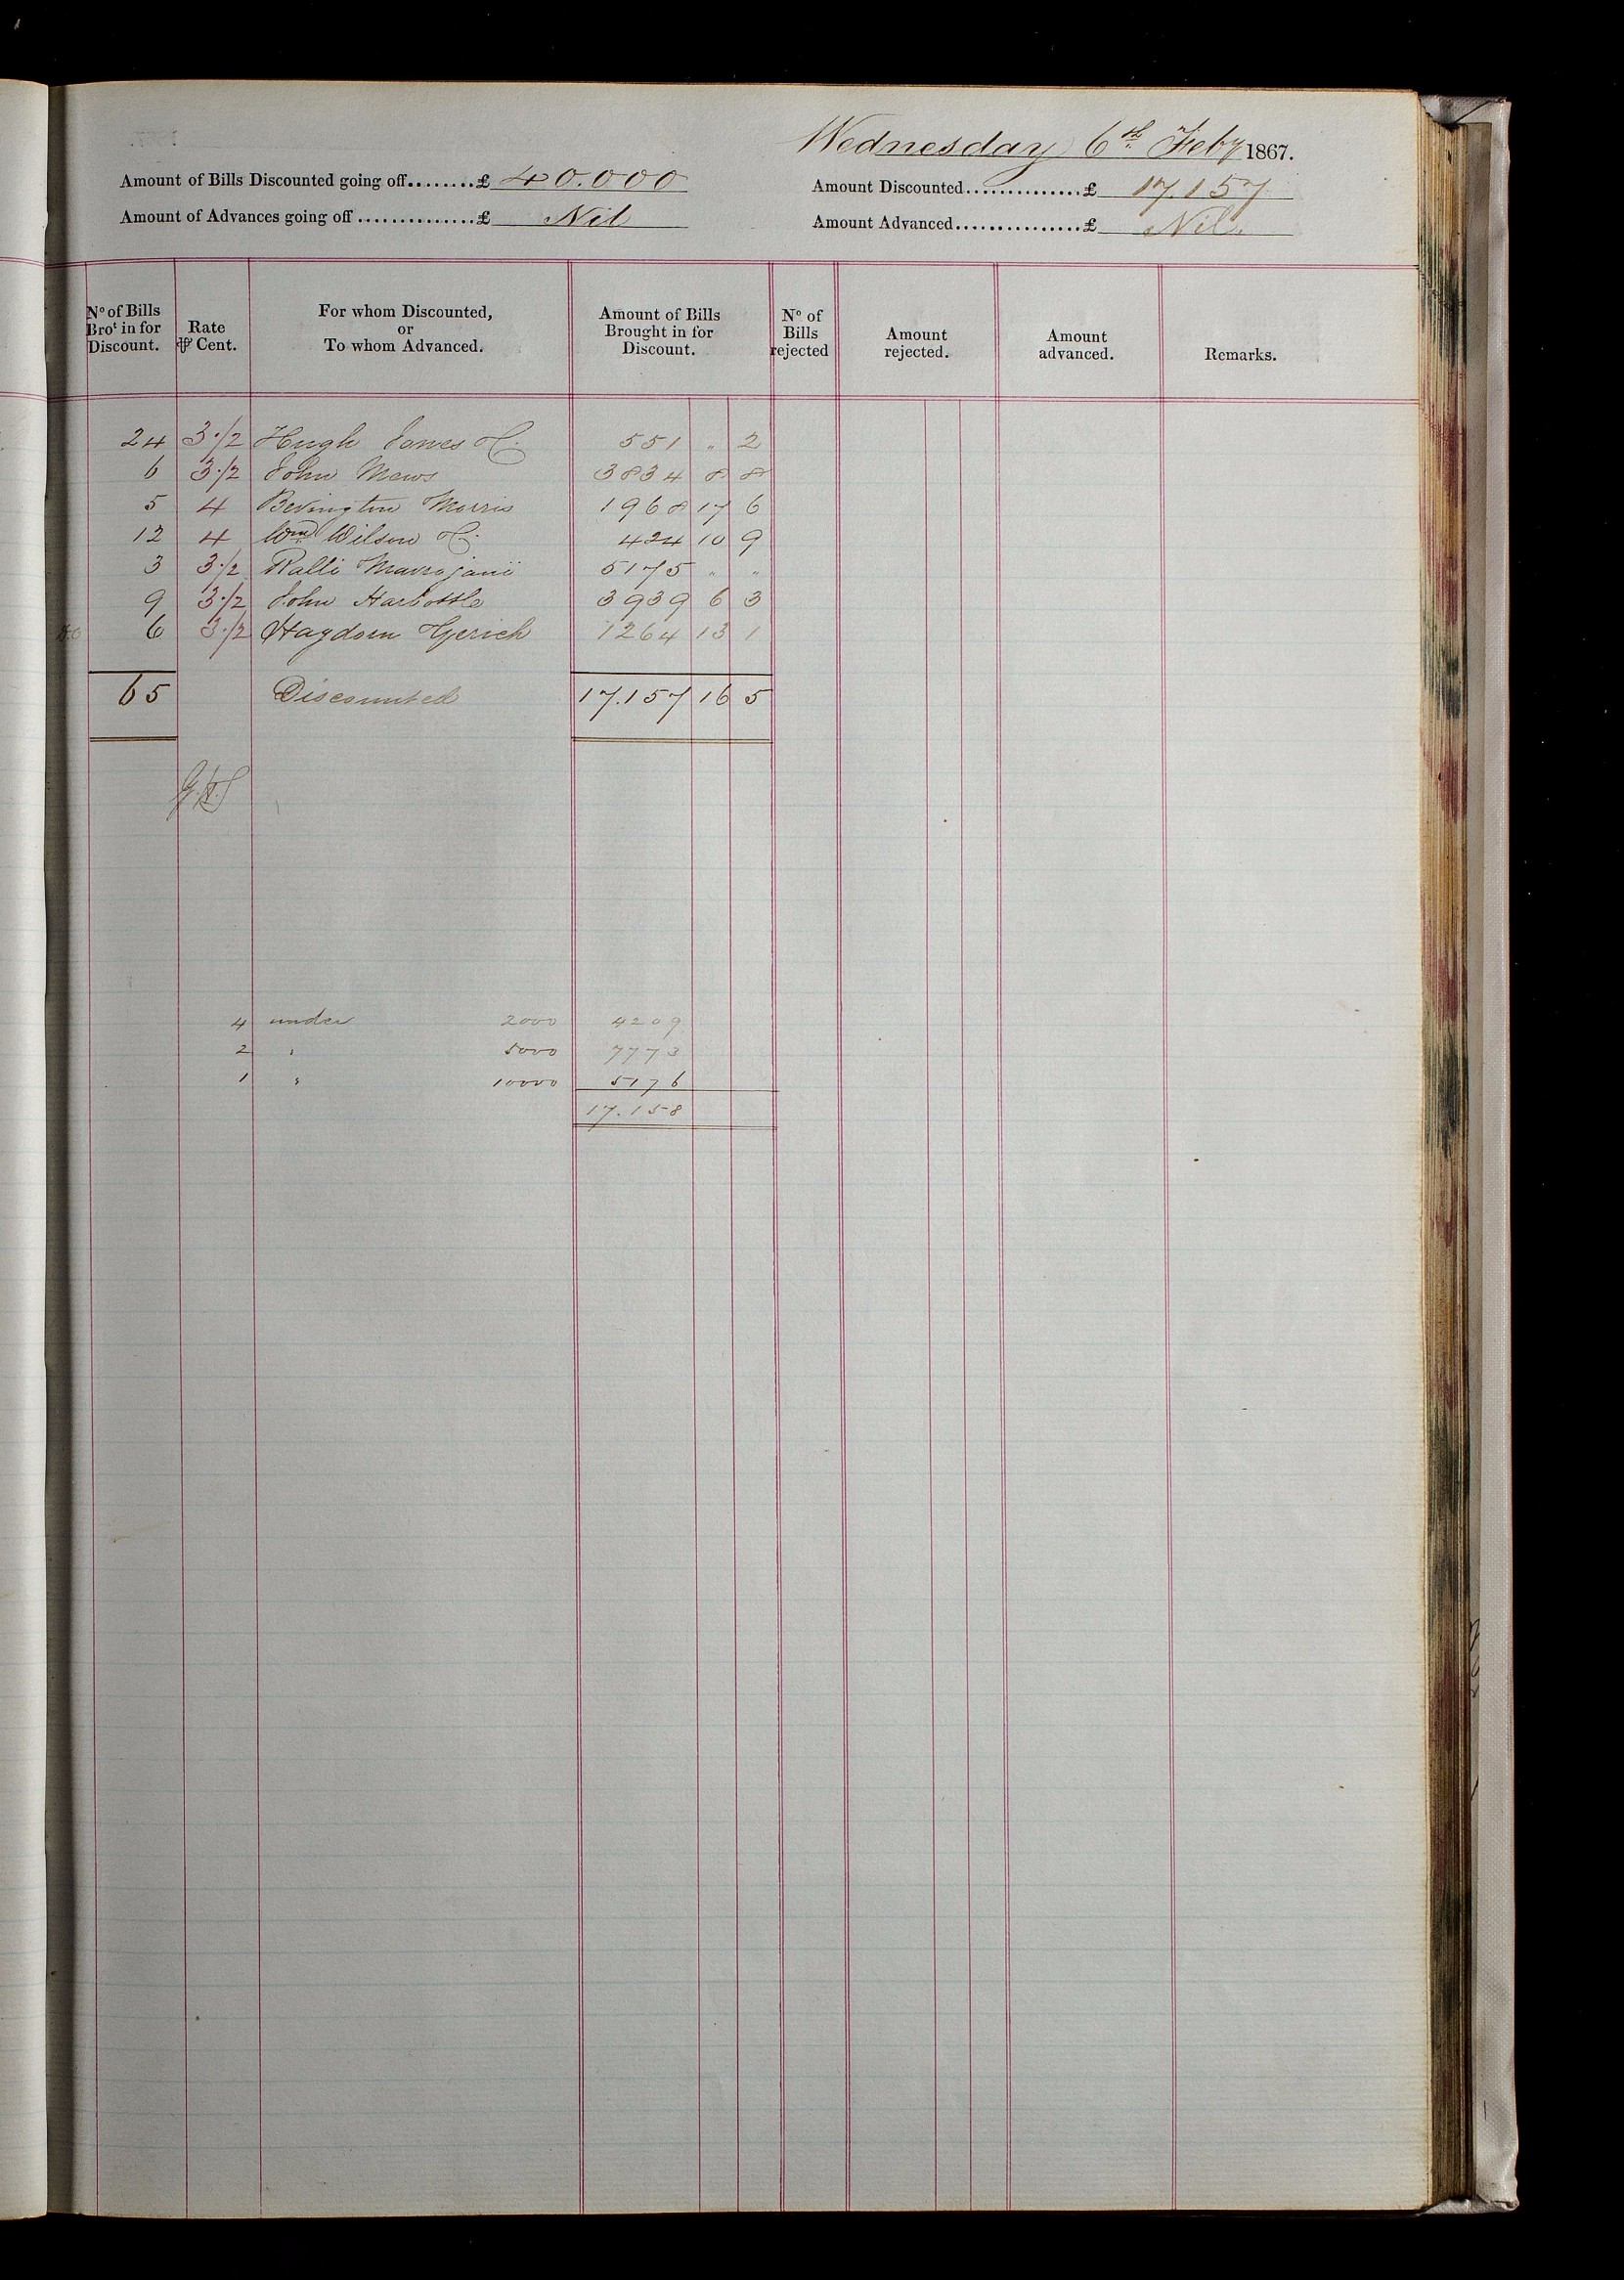 Wednesday 6th Feby 1867.
Amount of Bills Discounted going off........£ 40.000 Amount Discounted..............£ 17.157
Amount of Advances going off ..............£ Nil Amount Advanced...............£ Nil.
No of Bills Brot in for Discount. Rate ⅌ Cent. For whom Discounted, or To whom Advanced. Amount of Bills Brought in for Discount. No of Bills rejected Amount rejected. Amount advanced. Remarks.
24 3·/2 Hugh Jones 551 " 2
6 3·/2 John Mews 3834 8 8
5 4 Bevington Morris 1968 17 6
12 4 Wm Wilson 424 10 9
3 3·/2 Ralli Mavrojani 5175 " "
9 3·/2 John Harbottle 3939 6 3
6 3·/2 Hagdorn Gerich 1264 13 1
65 Discounted 17.157 16 5
4 under 2000 4209
2 " 5000 7773
1 " 10000 5176
17.158